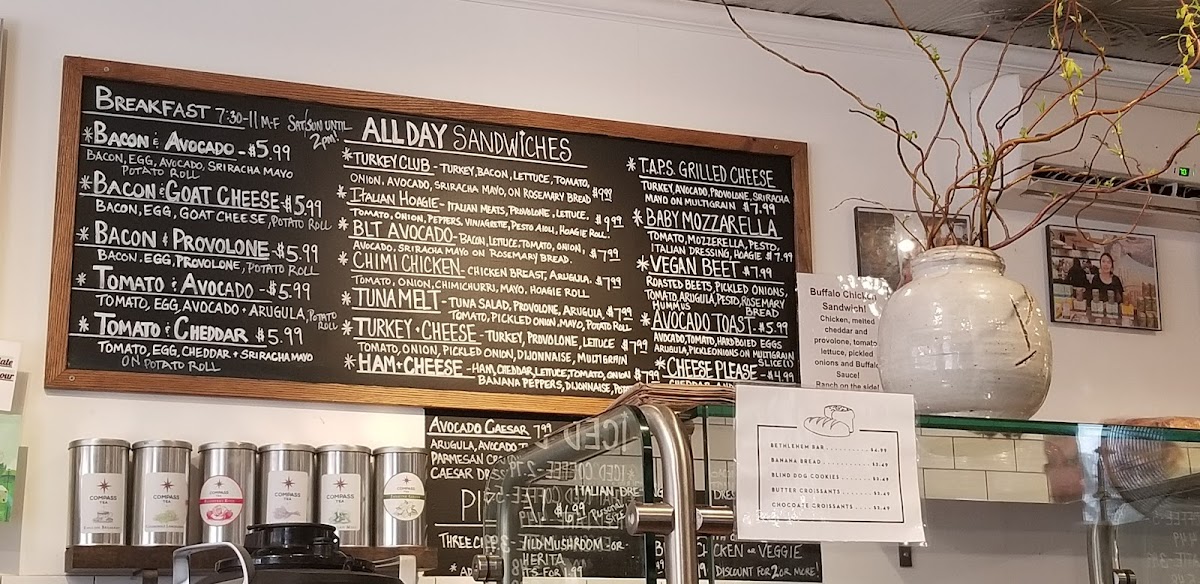 BREAKFAST 7:30-11 M-F SAT/SUN UNTIL
2PM!
*BACON & AVOCADO - $5.99
BACON, EGG, AVOCADO, SRIRACHA MAYO
POTATO ROLL
*BACON & GOAT CHEESE - $5.99
BACON, EGG, GOAT CHEESE, POTATO ROLL
*BACON & PROVOLONE - $5.99
BACON, EGG, PROVOLONE, POTATO ROLL
*TOMATO & AVOCADO - $5.99
TOMATO, EGG, AVOCADO + ARUGULA, POTATO
ROLL
*TOMATO & CHEDDAR - $5.99
TOMATO, EGG, CHEDDAR + SRIRACHA MAYO
ON POTATO ROLL
ALL DAY SANDWICHES
*TURKEY CLUB - TURKEY, BACON, LETTUCE, TOMATO,
ONION, AVOCADO, SRIRACHA MAYO, ON ROSEMARY BREAD $9.99
*ITALIAN HOAGIE - ITALIAN MEATS, PROVOLONE, LETTUCE,
TOMATO, ONION, PEPPERS, VINAIGRETTE, PESTO AIOLI, HOAGIE ROLL. $9.99
*BLT AVOCADO - BACON, LETTUCE, TOMATO, ONION,
AVOCADO, SRIRACHA MAYO ON ROSEMARY BREAD. $7.99
*CHIMI CHICKEN - CHICKEN BREAST, ARUGULA,
TOMATO, ONION, CHIMICHURRI, MAYO, HOAGIE ROLL $7.99
*TUNA MELT - TUNA SALAD, PROVOLONE, ARUGULA, $7.99
TOMATO, PICKLED ONION, MAYO, POTATO ROLL
*TURKEY + CHEESE - TURKEY, PROVOLONE, LETTUCE $7.99
TOMATO, ONION, PICKLED ONION, DIJONNAISE, MULTIGRAIN
*HAM + CHEESE - HAM, CHEDDAR, LETTUCE, TOMATO, ONION $7.99
BANANA PEPPERS, DIJONNAISE,
*T.A.P.S. GRILLED CHEESE
TURKEY, AVOCADO, PROVOLONE, SRIRACHA
MAYO ON MULTIGRAIN $7.99
*BABY MOZZARELLA
TOMATO, MOZZERELLA, PESTO,
ITALIAN DRESSING, HOAGIE $7.99
*VEGAN BEET $7.99
ROASTED BEETS, PICKLED ONIONS,
TOMATO, ARUGULA, PESTO, ROSEMARY
HUMMUS BREAD
*AVOCADO TOAST - $5.99
AVOCADO, TOMATO, HARD BOILED EGGS
ARUGULA, PICKLE ONIONS ON MULTIGRAIN
SLICE (1)
*CHEESE PLEASE - $4.99
Buffalo Chicken
Sandwich!
Chicken, melted
cheddar and
provolone, tomato
lettuce, pickled
onions and Buffalo
Sauce!
Ranch on the side!
BETHLEHEM BAR
BANANA BREAD
BLIND DOG COOKIES
BUTTER CROISSANTS
CHOCOATE CROISSANTS
AVOCADO CAESAR 7.99
ARUGULA, AVOCADO
PARMESAN
CAESAR
ITALIAN DRE
$6.99 Personal
THREE
WILD MUSHROOM - OR -
OR VEGGIE
FOR 1.99
DISCOUNT FOR 2 OR MORE!
COMPASS
TEA
COMPASS
TEA
COMPASS
COMPASS
TEA
COMPASS
TEA
COMPASS